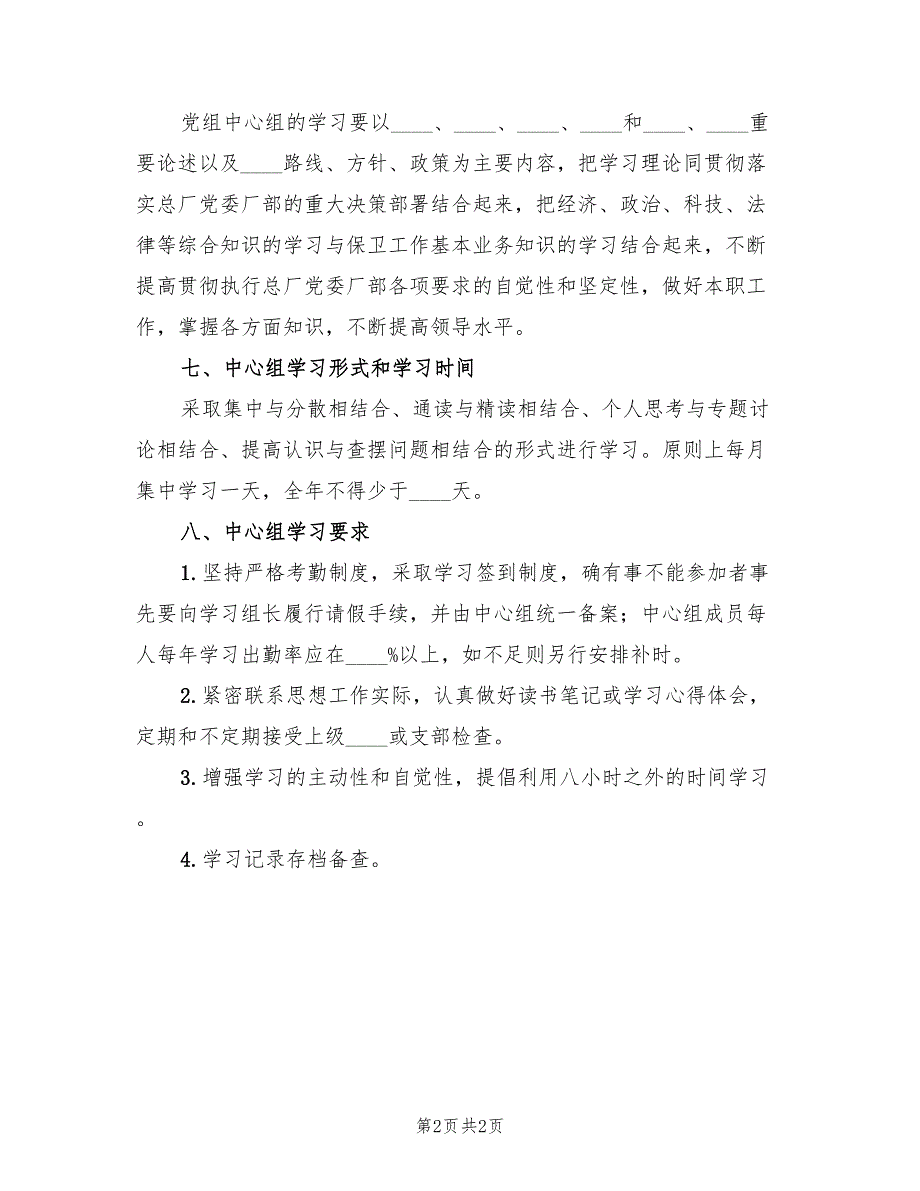 党组中心组的学习要以____、____、____、____和____、____重
要论述以及____路线、方针、政策为主要内容，把学习理论同贯彻落
实总厂党委厂部的重大决策部署结合起来，把经济、政治、科技、法
律等综合知识的学习与保卫工作基本业务知识的学习结合起来，不断
提高贯彻执行总厂党委厂部各项要求的自觉性和坚定性，做好本职工
作，掌握各方面知识，不断提高领导水平。
七、中心组学习形式和学习时间
采取集中与分散相结合、通读与精读相结合、个人思考与专题讨
论相结合、提高认识与查摆问题相结合的形式进行学习。原则上每月
集中学习一天，全年不得少于____天。
八、中心组学习要求
1.坚持严格考勤制度，采取学习签到制度，确有事不能参加者事
先要向学习组长履行请假手续，并由中心组统一备案；中心组成员每
人每年学习出勤率应在____%以上，如不足则另行安排补时。
2.紧密联系思想工作实际，认真做好读书笔记或学习心得体会，
定期和不定期接受上级____或支部检查。
3.增强学习的主动性和自觉性，提倡利用八小时之外的时间学习
。
4.学习记录存档备查。
第2页共2页